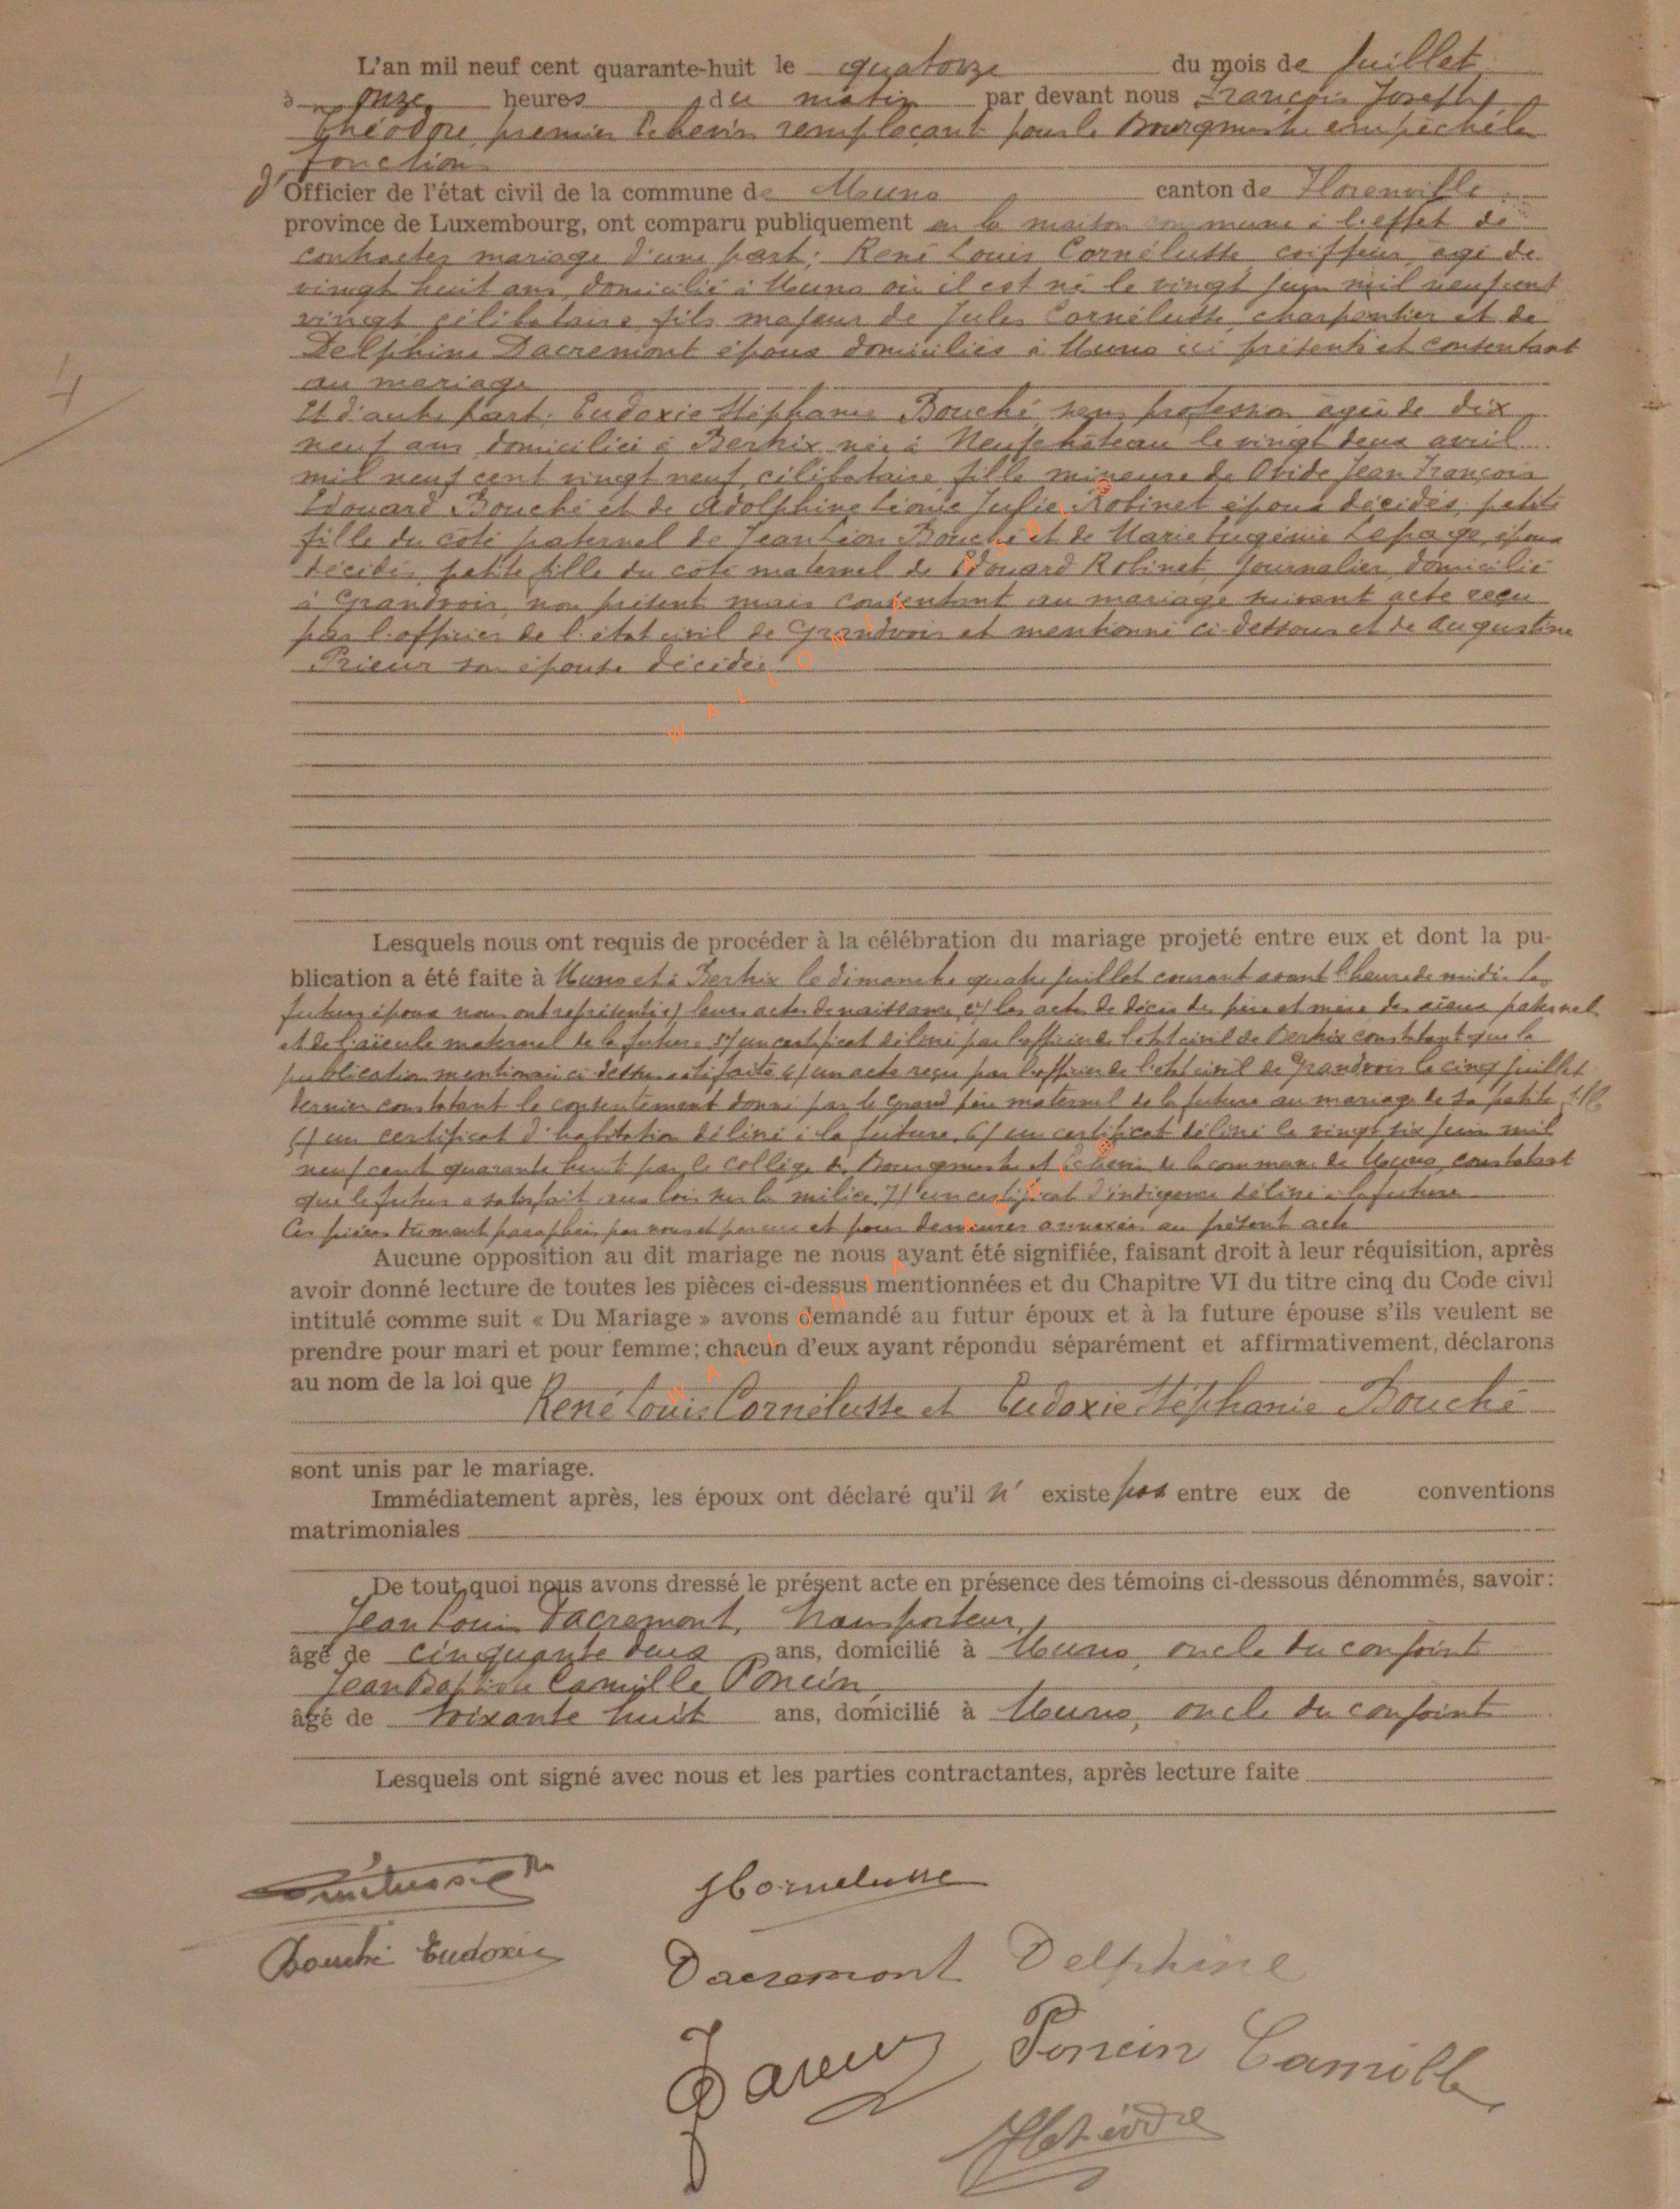 L'an mil neuf cent quarante-huit le quatorze du mois de Juillet
à onze heures du matin par devant nous François Joseph
Théodore, premier Echevin remplaçant pour le Bourgmestre empêché la
fonction
d'Officier de l'état civil de la commune de Muno canton de Florenville
province de Luxembourg, ont comparu publiquement en la maison commune à l'effet de
contracter mariage d'une part: René Louis Cornélusse, coiffeur agé de
vingt huit ans, domicilié à Muno où il est né le vingt juin mil neuf cent
vingt célibataire, fils majeur de Jules Cornélusse, charpentier et de
Delphine Dacremont époux domiciliés à Muno ici présents et consentant
au mariage
Et d'autre part: Eudoxie Stéphanie Bouché, sans profession agée de dix
neuf ans domiciliée à Bertrix née à Neufchâteau le vingt deux avril
mil neuf cent vingt neuf, célibataire fille mineure de Ovide Jean François
Edouard Bouché et de Adolphine Léonie Julie Robinet époux décédés, petite
fille du côté paternel de Jean Léon Bouché et de Marie Eugénie Lepage, époux
décédés, petite fille du côté maternel de Edouard Robinet, journalier, domicilié
à Grandvoir, non présent mais consentant au mariage suivant acte reçu
par l'officier de l'état civil de Grandvoir et mentionné ci-dessous et de Augustine
Prieur son épouse décédée
Lesquels nous ont requis de procéder à la célébration du mariage projeté entre eux et dont la pu-
blication a été faite à Muno et à Bertrix le dimanche quatre juillet courant avant l'heure de midi. Les
futurs époux nous ont représenté 1) leurs actes de naissance, 2) les actes de décès des père et mère des aïeux paternel
et de l'aïeule maternel de la future 3) un certificat délivré par l'officier de l'état civil de Bertrix constatant que la
publication mentionnée ci dessus a été faite 4) un acte reçu par l'officier de l'état civil de Grandvoir le cinq juillet
dernier constatant le consentement donné par le Grand père maternel de la future au mariage de sa petite fille
5) un certificat d'habitation délivré à la future, 6) un certificat délivré le vingt six juin mil
neuf cent quarante huit par le Collège des Bourgmestre et Echevins de la commune de Muno, constatant
que le futur a satisfait aux lois sur la milice, 7) un certificat d'indigence délivré à la future
Ces pièces dûment paraphées par nous et par eux et pour demeurer annexées au présent acte
Aucune opposition au dit mariage ne nous ayant été signifiée, faisant droit à leur réquisition, après
avoir donné lecture de toutes les pièces ci-dessus mentionnées et du Chapitre VI du titre cinq du Code civil
intitulé comme suit « Du Mariage » avons demandé au futur époux et à la future épouse s'ils veulent se
prendre pour mari et pour femme; chacun d'eux ayant répondu séparément et affirmativement, déclarons
au nom de la loi que
René Louis Cornélusse et Eudoxie Stéphanie Bouché
sont unis par le mariage.
Immédiatement après, les époux ont déclaré qu'il n' existe pas entre eux de conventions
matrimoniales
De tout quoi nous avons dressé le présent acte en présence des témoins ci-dessous dénommés, savoir:
Jean Louis Dacremont, transporteur,
âgé de cinquante deux ans, domicilié à Muno, oncle du conjoint
Jean Baptiste Camille Poncin,
âgé de soixante huit ans, domicilié à Muno, oncle du conjoint
Lesquels ont signé avec nous et les parties contractantes, après lecture faite
Bouché Eudoxie
Dacremont Delphine
Poncin Camille
4